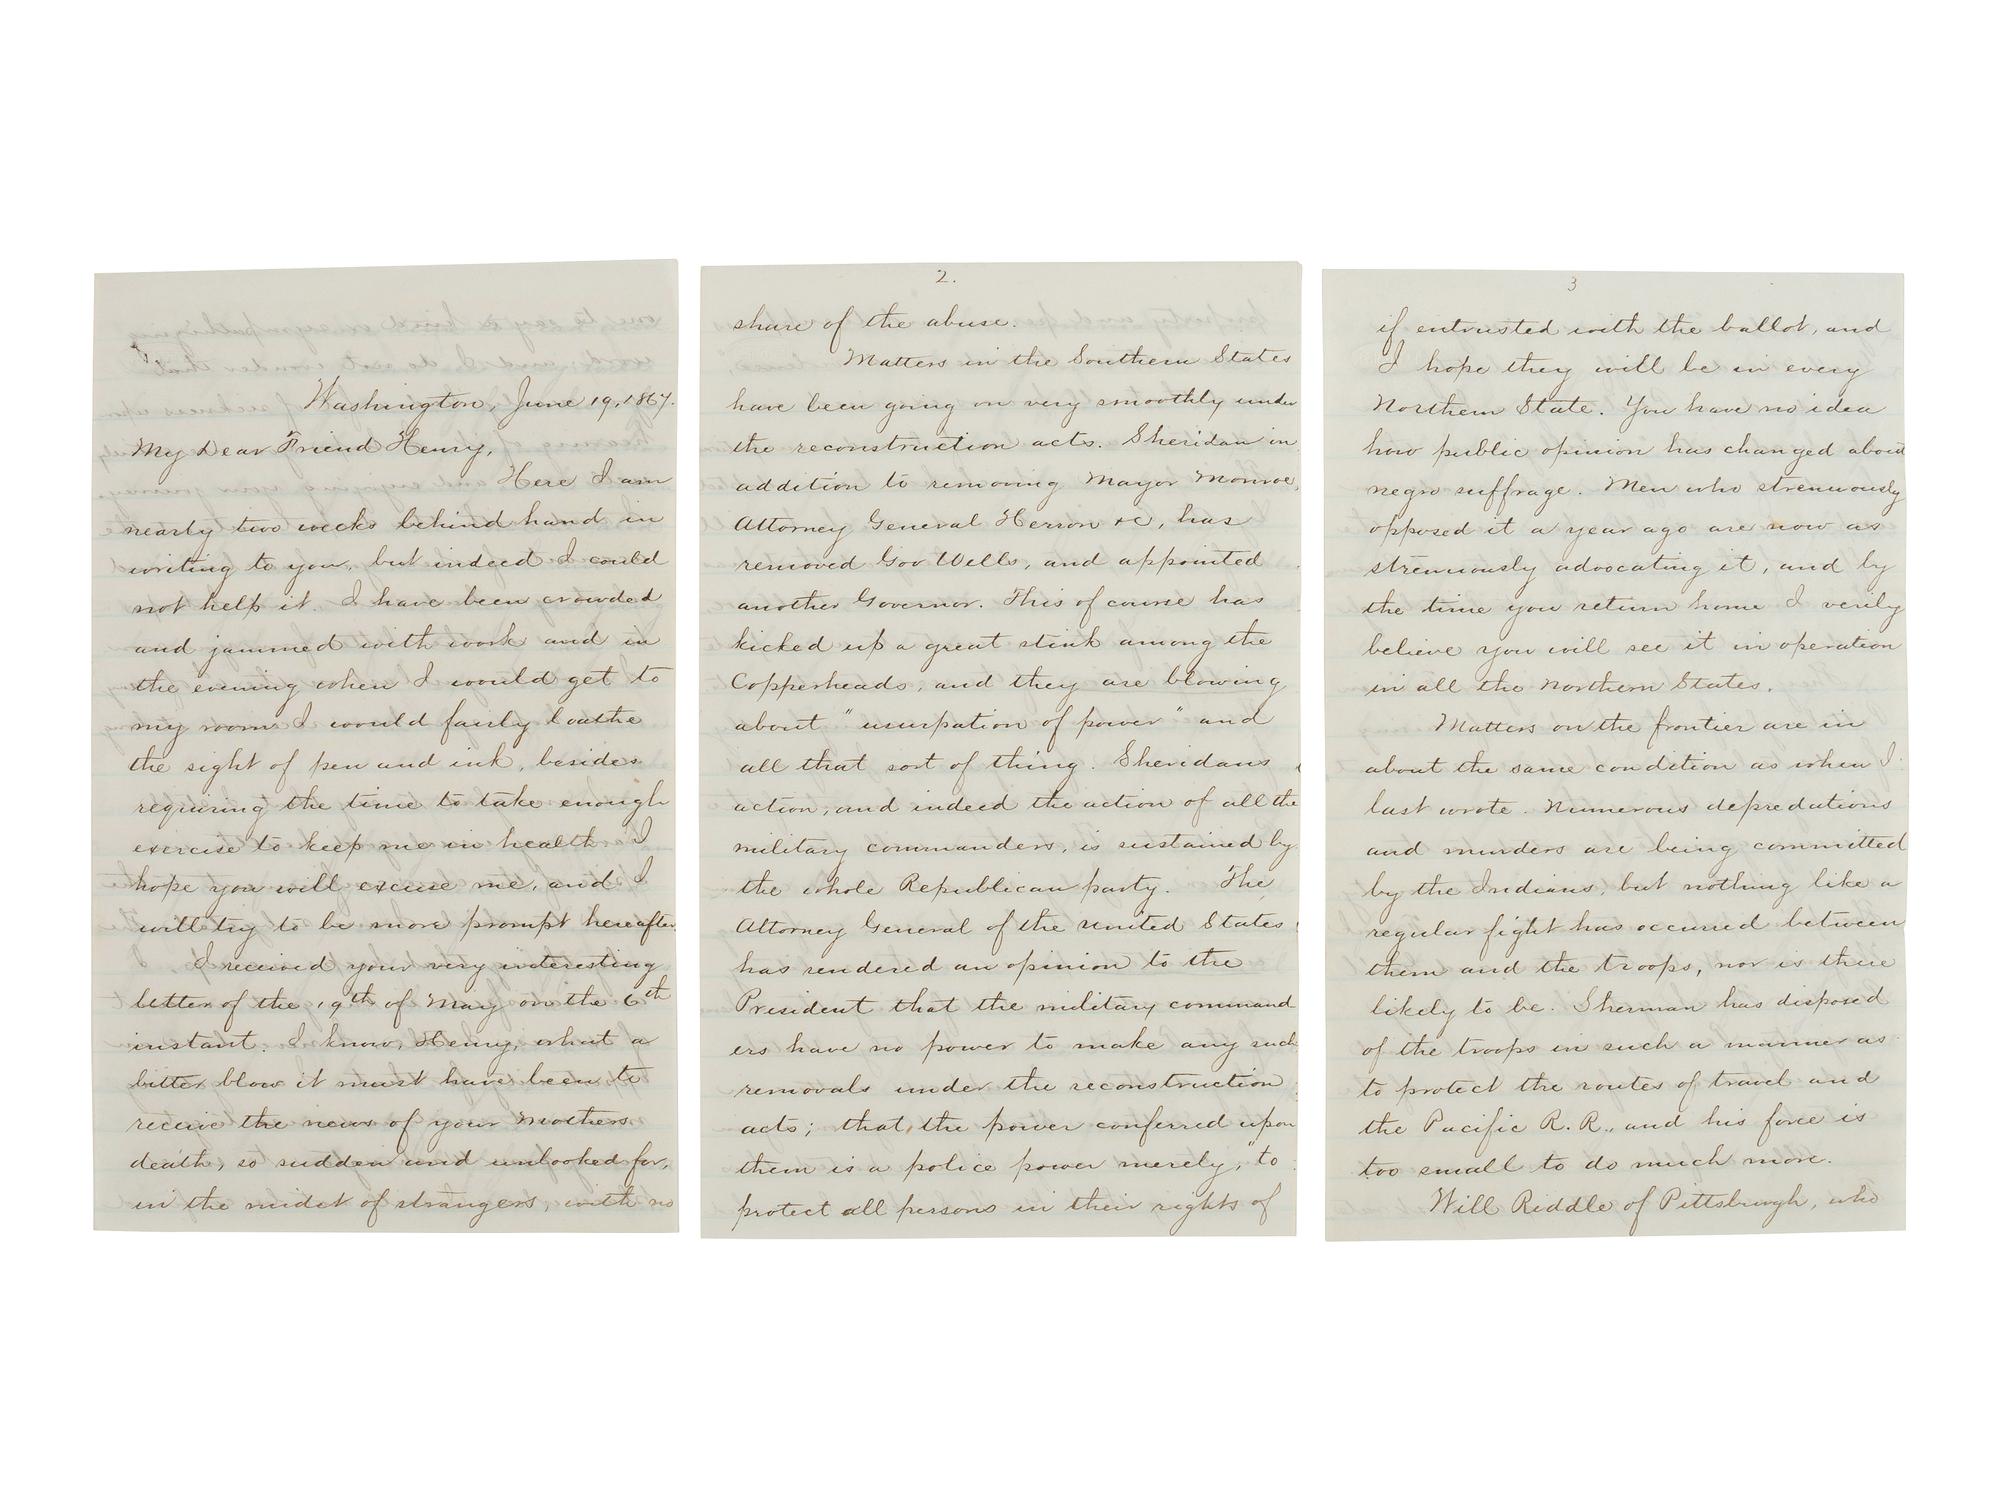 Washington, June 19, 1867.
My Dear Friend Henry,
Here I am
nearly two weeks behind hand in
writing to you, but indeed I could
not help it. I have been crowded
and jammed with work and in
the evening when I would get to
my room I would fairly loathe
the sight of pen and ink, besides
requiring the time to take enough
exercise to keep me in health. I
hope you will excuse me, and I
will try to be more prompt hereafter.
I received your very interesting
letter of the 19th of May on the 6th
instant. I know, Henry, what a
bitter blow it must have been to
receive the news of your Mothers
death, so sudden and unlooked for,
in the midst of strangers, with no
2.
share of the abuse.
Matters in the Southern States
have been going on very smoothly under
the reconstruction acts. Sheridan in
addition to removing Mayor Monroe,
Attorney General Herron &c, has
removed Gov Wells, and appointed
another Governor. This of course has
kicked up a great stink among the
Copperheads, and they are blowing
about "usurpation of power" and
all that sort of thing. Sheridans
action, and indeed the action of all the
military commanders, is sustained by
the whole Republican party. The
Attorney General of the United States
has rendered an opinion to the
President that the military command
ers have no power to make any such
removals under the reconstruction
acts; that the power conferred upon
them is a police power merely, "to
protect all persons in their rights of
3
if entrusted with the ballot, and
I hope they will be in every
Northern State. You have no idea
how public opinion has changed about
negro suffrage. Men who strenuously
opposed it a year ago are now as
strenuously advocating it, and by
the time you return home I verily
believe you will see it in operation
in all the Northern States.
Matters on the frontier are in
about the same condition as when I
last wrote. Numerous depredations
and murders are being committed
by the Indians, but nothing like a
regular fight has occurred between
them and the troops, nor is there
likely to be. Sherman has disposed
of the troops in such a manner as
to protect the routes of travel and
the Pacific R.R., and his force is
too small to do much more.
Will Riddle of Pittsburgh, who